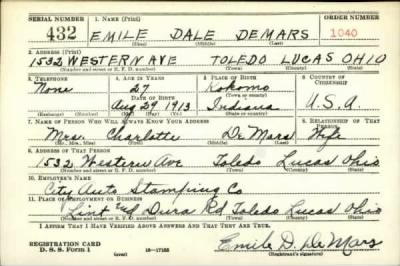 SERIAL NUMBER 1. NAME (Print) ORDER NUMBER
432 EMILE DALE DEMARS 1040
(First) (Middle) (Last)
2. ADDRESS (Print)
1532 WESTERN AVE TOLEDO LUCAS OHIO
(Number and street or R. F. D. number) (Town) (County) (State)
3. TELEPHONE 4. AGE IN YEARS 5. PLACE OF BIRTH 6. COUNTRY OF CITIZENSHIP
None 27 Kokomo
DATE OF BIRTH (Town or county)
Aug 29 1913 Indiana U.S.A.
(Exchange) (No.) (Mo.) (Day) (Yr.) (State or country)
7. NAME OF PERSON WHO WILL ALWAYS KNOW YOUR ADDRESS 8. RELATIONSHIP OF THAT PERSON
Mrs. Charlotte DeMars Wife
(Mr., Mrs., Miss) (First) (Middle) (Last)
9. ADDRESS OF THAT PERSON
1532 Western Ave Toledo Lucas Ohio
(Number and street or R. F. D. number) (Town) (County) (State)
10. EMPLOYER'S NAME
City Auto Stamping Co
11. PLACE OF EMPLOYMENT OR BUSINESS
and Dura Rd Toledo Lucas Ohio
(Number and street or R. F. D. number) (Town) (County) (State)
I AFFIRM THAT I HAVE VERIFIED ABOVE ANSWERS AND THAT THEY ARE TRUE.
REGISTRATION CARD
D. S. S. Form 1 16—17105 Emile D. DeMars
(Registrant's signature)